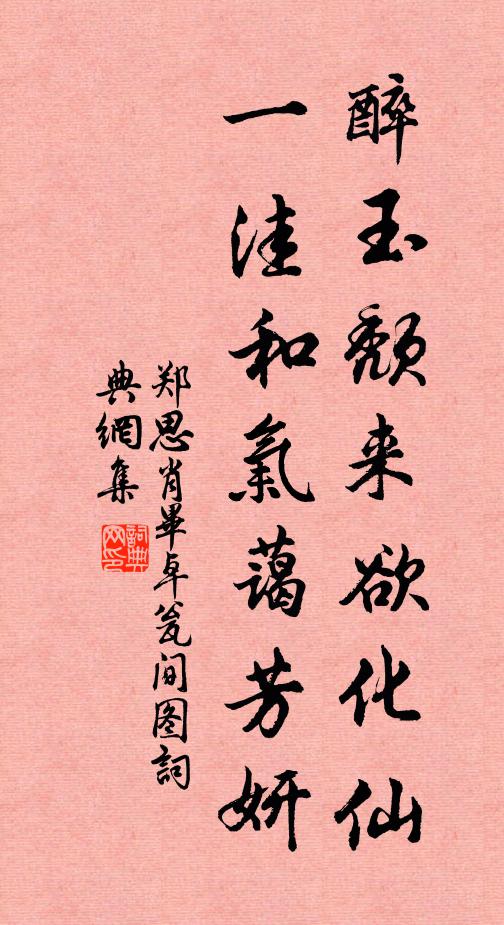 醉玉颓来欲化仙
一洼和氣蔼芳妍
郑思肖畢卓瓮间图詞
典網集
詞典
网印